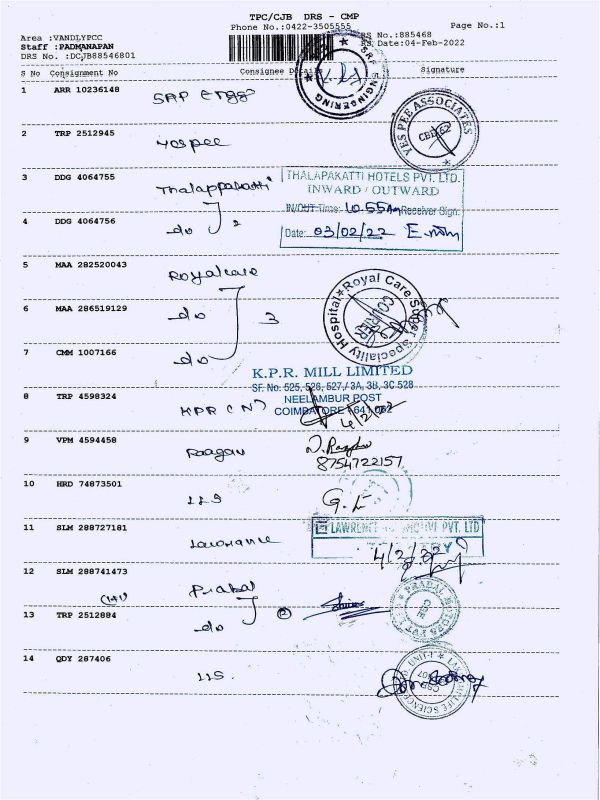 TPC/CJB DRS - CMP
Phone No.:0422-3505555
Page No.:1
Area :VANDLYPCC
Staff :PADMANAPAN
DRS No. :DCJB88546801
RS No.:885468
RS Date:04-Feb-2022
S No Consignment No Consignee Details Signature
1 ARR 10236148 SRP Engg
ENGINEERING
2 TRP 2512945 Yospee
YES PEE ASSOCIATES
CBE-62
3 DDG 4064755 Thalappakatti
THALAPAKATTI HOTELS PVT. LTD.
INWARD / OUTWARD
IN/OUT Time: 10.55 Am Receiver Sign:
4 DDG 4064756 do 2
Date: 03/02/22
5 MAA 282520043 Royalcare
Royal Care Super Speciality Hospital
COURIER
6 MAA 286519129 do 3
7 CMM 1007166 do
K.P.R. MILL LIMITED
SF. No. 525, 526, 527,/ 3A, 3B, 3C 528
NEELAMBUR POST
COIMBATORE - 641 062
8 TRP 4598324 KPR (N)
4/2/22
9 VPM 4594458 Raagav
8754722157
10 HRD 74873501 LLS
11 SLM 288727181 Lawrance
LAWRENCE PVT. LTD
4/2/22
12 SLM 288741473 Prabal
(1+1)
13 TRP 2512884 do 2
PRADAL MOTORS PVT LTD
CBE
14 QDY 287406 LLS
UNIT-I
LAKSHMI LIFE SCIENCES